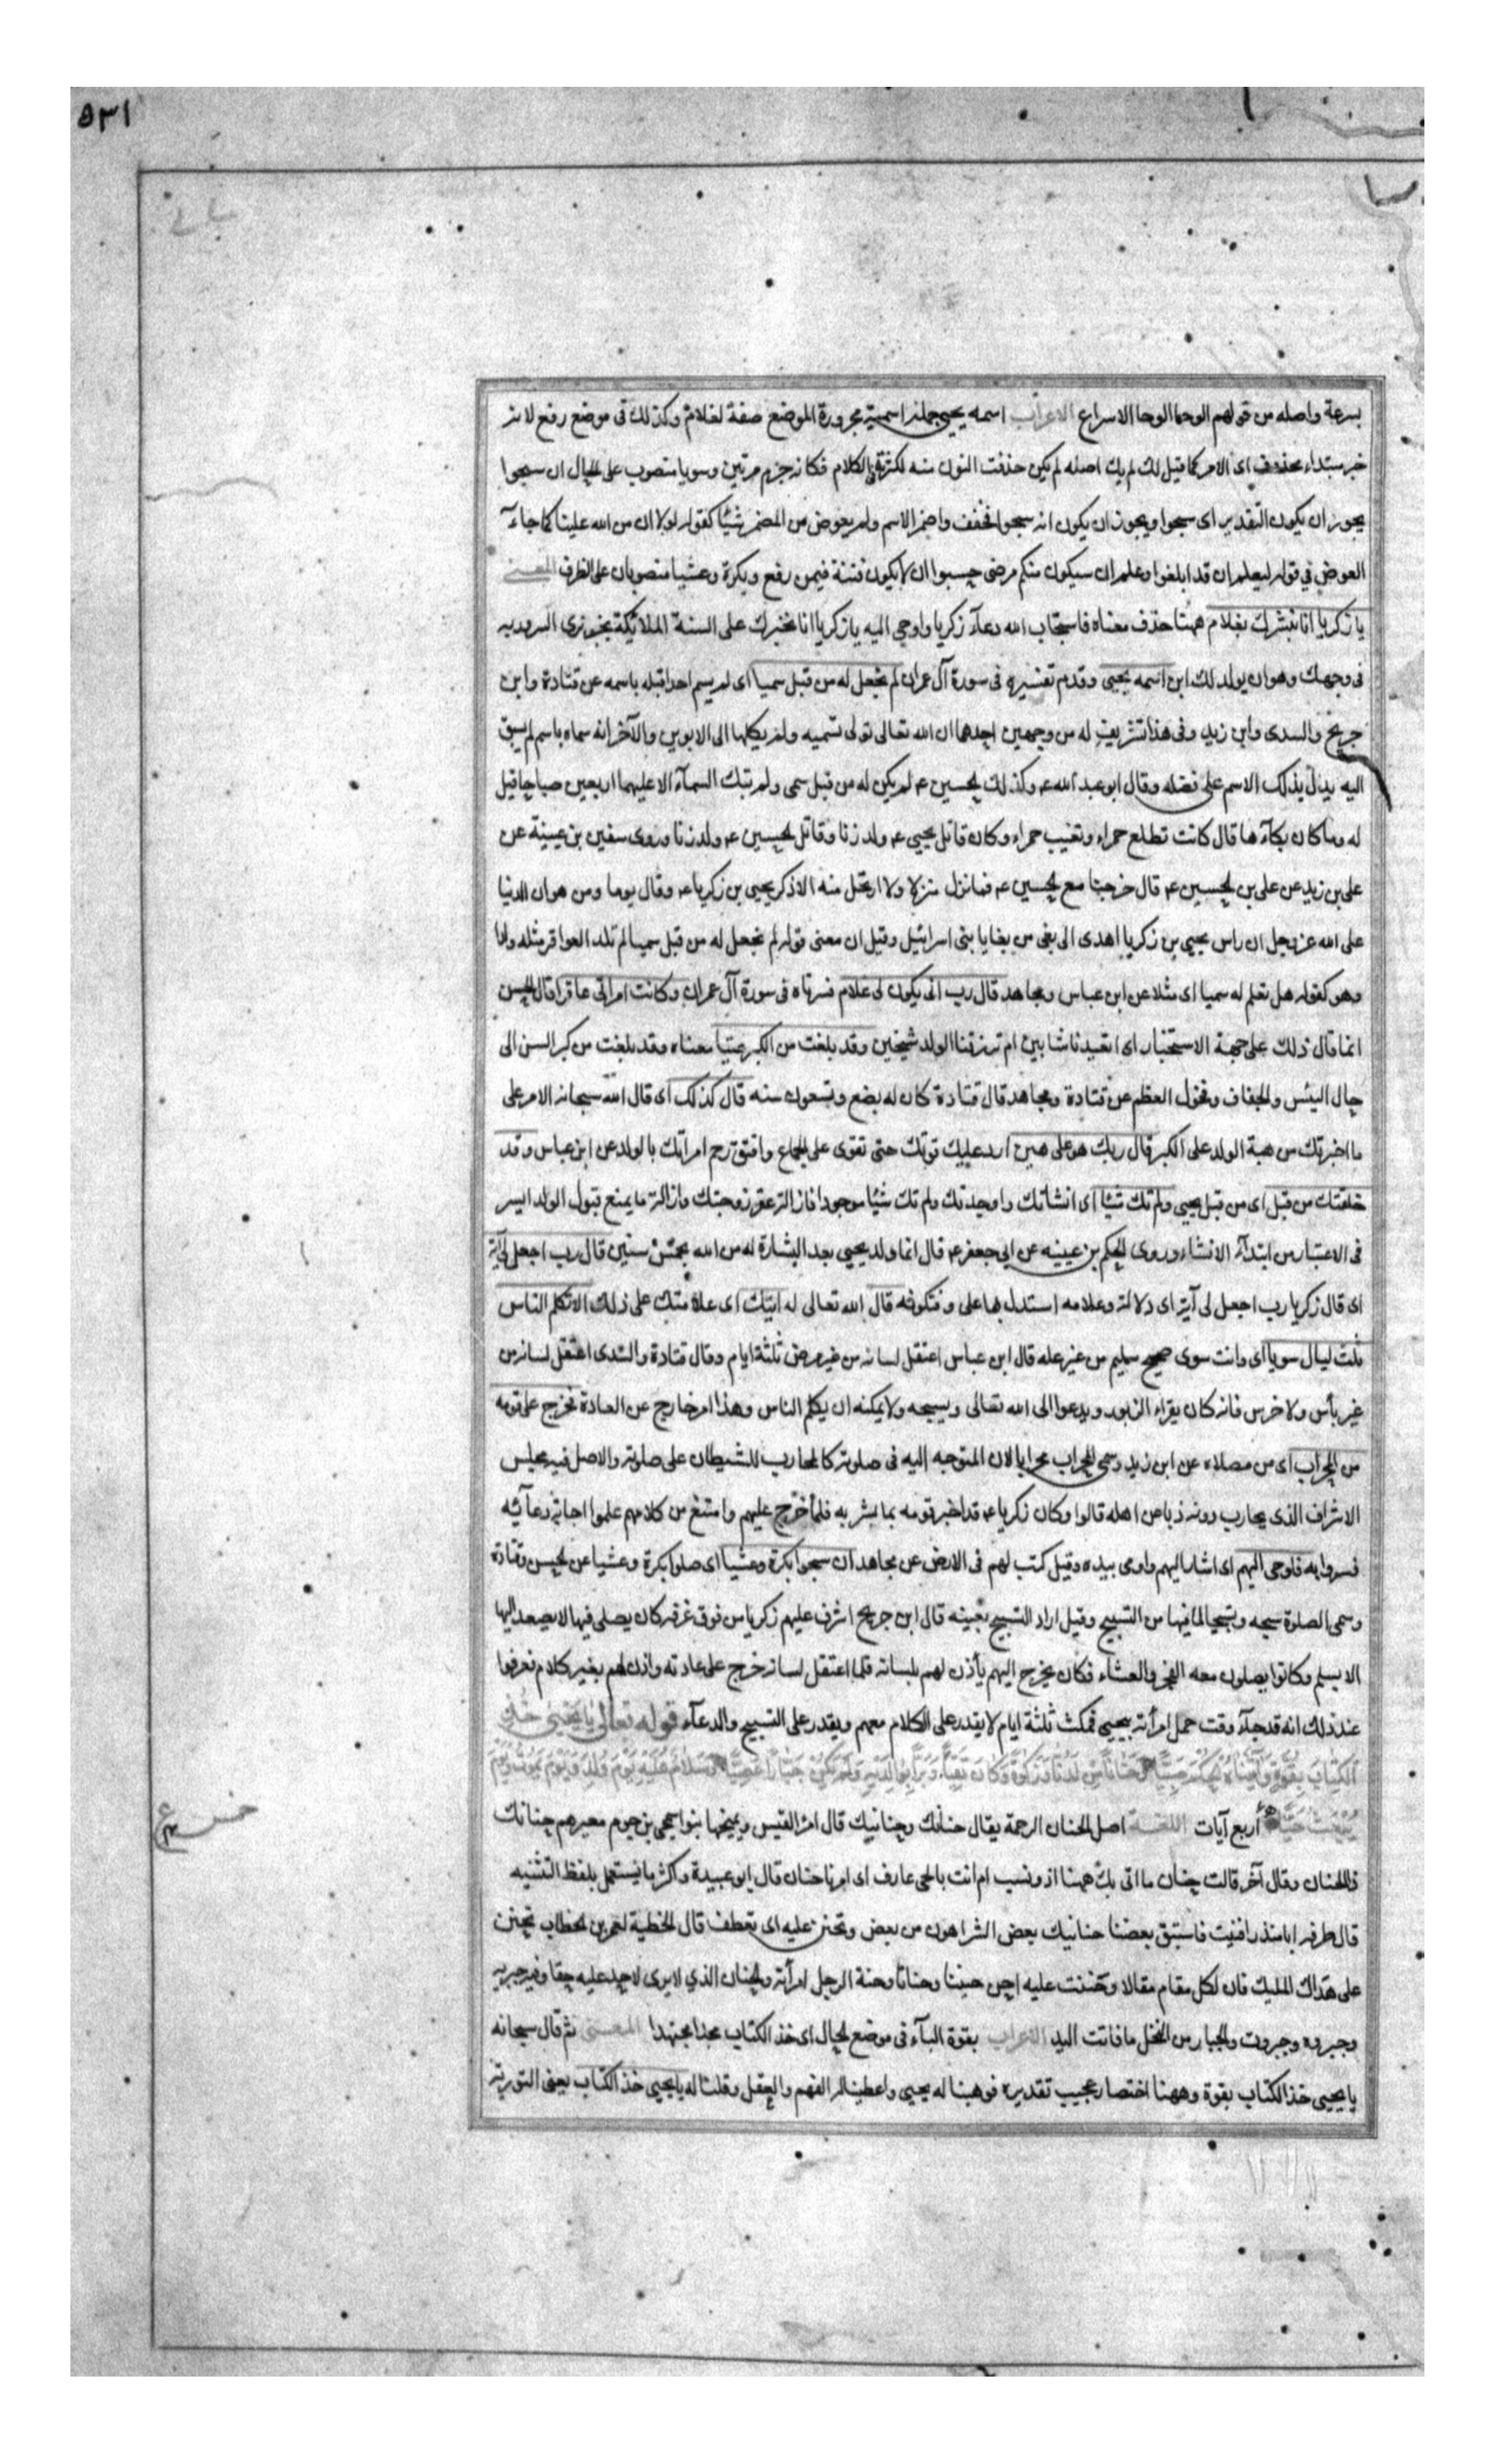 ٥٣١
بسرعة واصله من قولهم الوحا الوحا الاسراع الاعراب اسمه يحيى جملة اسمية مجرورة الموضع صفة لغلام وكذلك فى موضع رفع لانه
خبر مبتداء محذوف اى الامر كما قيل لك لم يك اصله لم يكن حذفت النون منه لكثرته فى الكلام فكانه جزم مرتين وسويا منصوب على الحال ان سبحوا
يجوز ان يكون التقدير اى سبحوا ويجوز ان يكون انه سبحوا فخفف واضمر الاسم ولم يعوض من المضمر شيئا كقوله لولا ان من الله علينا كما جاء
العوض في قوله ليعلم ان قد ابلغوا وعلم ان سيكون منكم مرضى وحسبوا ان لا يكون فتنة فيمن رفع وبكرة وعشيا منصوبان على الظرف المعنى
يا زكريا انا نبشرك بغلام ههنا حذف معناه فاستجاب الله دعآء زكريا واوحي اليه يا زكريا انا نخبرك على السنة الملائكة بخبر نرى السرور به
فى وجهك وهو ان يولد لك ابن اسمه يحيى وقدم تفسيره فى سورة آل عمران لم نجعل له من قبل سميا اى لم يسم احد قبله باسمه عن قتادة وابن
جريح والسدى وابن زيد وفى هذا تشريف له من وجهين احدهما ان الله تعالى تولى تسميه ولم يكلها الى الابوين والآخر انه سماه باسم لم يسبق
اليه يدل بذلك الاسم على فضله وقال ابو عبد الله ع وكذلك الحسين ع لم يكن له من قبل سمى ولم تبك السمآء الا عليهما اربعين صباحا قيل
له وما كان بكآءها قال كانت تطلع حمراء وتغيب حمراء وكان قاتل يحيي ع ولد زنا وقاتل الحسين ع ولد زنا وروى سفين بن عيينة عن
على بن زيد عن على بن الحسين ع قال خرجنا مع الحسين ع فما نزل منزلا ولا ارتحل منه الا ذكر يحيى بن زكريا ع وقال يوما ومن هوان الدنيا
على الله عز وجل ان راس يحيى بن زكريا اهدى الى بغى من بغايا بنى اسرائيل وقيل ان معنى قوله لم نجعل له من قبل سميا لم تلد العواقر مثله ولدا
وهو كقوله هل تعلم له سميا اى مثلا عن ابن عباس ومجاهد قال رب انى يكون لى غلام فسرناه فى سورة آل عمران وكانت امراتى عاقرا قال الحسن
انما قال ذلك على جهة الاستخبار اى اتعيدنا شابين ام ترزقنا الولد شيخين وقد بلغت من الكبر عتيا معناه وقد بلغت من كبر السن الى
حال اليئس والجفاف ونحول العظم عن قتادة ومجاهد قال قتادة كان له بضع وتسعون سنه قال كذلك اى قال الله سبحانه الامر على
ما اخبرتك من هبة الولد على الكبر قال ربك هو على هين ارد عليك قوتك حتى تقوى على الجماع وافتق رحم امراتك بالولد عن ابن عباس وقد
خلقتك من قبل اى من قبل يحيى ولم تك شيئا اى انشأتك واوجدتك ولم تك شيئا موجودا فازالة عقر زوجتك وازالة ما يمنع قبول الولد ايسر
فى الاعتبار من ابتدآء الانشاء وروى الحكم بن عيينه عن ابى جعفر ع قال انما ولد يحيى بعد البشارة له من الله بخمس سنين قال رب اجعل لى آية
اى قال زكريا رب اجعل لى آية اى دلالة وعلامه استدل بها على وقت كونه قال الله تعالى له ايتك اى علامتك على ذلك الا تكلم الناس
ثلث ليال سويا اى وانت سوى صحيح سليم من غير عله قال ابن عباس اعتقل لسانه من غير مرض ثلثة ايام وقال قتادة والسدى اعتقل لسانه من
غير بأس ولا خرس فانه كان يقراء الزبور ويدعوا الى الله تعالى ويسبحه ولا يمكنه ان يكلم الناس وهذا امر خارج عن العادة فخرج على قومه
من المحراب اى من مصلاه عن ابن زيد وسمى المحراب محرابا لان المتوجه اليه فى صلوته كالمحارب للشيطان على صلوته والاصل فيه مجلس
الاشراف الذى يحارب دونه ذبا عن اهله قالوا وكان زكريا ع قد اخبر قومه بما بشر به فلما خرج عليهم وامتنع من كلامهم علموا اجابة دعآئه
فسروا به فاوحى اليهم اى اشار اليهم واومى بيده وقيل كتب لهم فى الارض عن مجاهد ان سبحوا بكرة وعشيا اى صلوا بكرة وعشيا عن الحسن وقتادة
وسمى الصلوة سبحه وتسبيحا لما فيها من التسبيح وقيل اراد التسبيح بعينه قال ابن جريح اشرف عليهم زكريا من فوق غرفة كان يصلى فيها لا يصعد اليها
الا بسلم وكانوا يصلون معه الفجر والعشاء فكان يخرج اليهم يأذن لهم بلسانه فلما اعتقل لسانه خرج على عادته واذن لهم بغير كلام فعرفوا
عند ذلك انه قد جآء وقت حمل امرأته بيحيى فمكث ثلثة ايام لا يقدر على الكلام معهم ويقدر على التسبيح والدعآء قوله تعالى يا يحيى خذ
الكتاب بقوة وآتيناه الحكم صبيا وحنانا من لدنا وزكوة وكان تقيا وبرا بوالديه ولم يكن جبارا عصيا وسلام عليه يوم ولد ويوم يموت ويوم
يبعث حيا أربع آيات اللغة اصل الحنان الرحمة يقال حنانك وحنانيك قال امرؤ القيس ويمنحها بنو شمجى بن جرم معيزهم حنانك
ذا الحنان وقال آخر قالت حنان ما اتى بك ههنا اذو نسب ام انت بالحى عارف اى امرنا حنان قال ابو عبيدة واكثر ما يستعمل بلفظ التثنيه
قال طرفه ابا منذر افنيت فاستبق بعضنا حنانيك بعض الشر اهون من بعض وتحنن عليه اى تعطف قال الحطيئة لعمر بن الخطاب تحنن
على هداك المليك فان لكل مقام مقالا وتحننت عليه احن حنينا وحنانا وحنة الرجل امرأته والحنان الذي لا يرى لاحد عليه حقا وفيه جبريه
وجبروه وجبروت والجبار من النخل ما فاتت اليد الاعراب بقوة البآء فى موضع الحال اى خذ الكتاب مجدا مجتهدا المعنى ثم قال سبحانه
يا يحيى خذ الكتاب بقوة وههنا اختصار عجيب تقديره فوهبنا له يحيى واعطيناه الفهم والعقل وقلنا له يا يحيى خذ الكتاب يعنى التورية